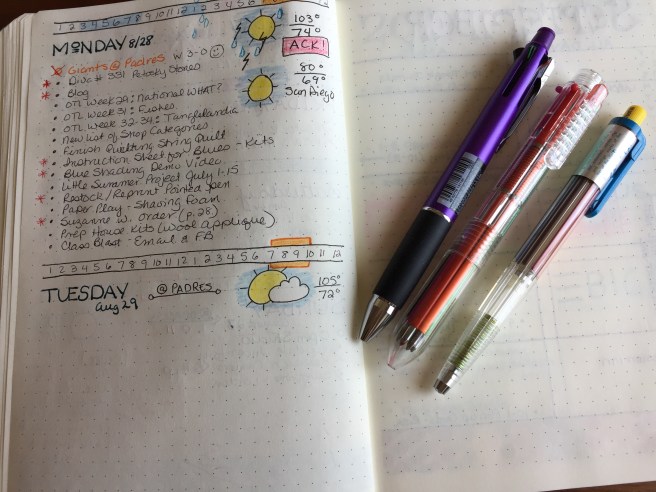 1 2 3 4 5 6 7 8 9 10 11 12 1 2 3 4 5 6 7 8 9 10 11 12
MONDAY 8/28
103°
74°
ACK!
80°
69°
San Diego
Giants @ Padres W 3-0
Diva # 331 Petosky Stones
Blog
OTL Week 29: National WHAT?
OTL Week 31: Eyelet
OTL Week 32-34: Tanglelandia
New list of Shop Categories
Finish Quilting String Quilt
Instruction Sheet for Blues - Kits
Blue Shading Demo Video
Little Summer Project July 1-15
Restock/Reprint Pointed Pen
Paper Play - Shaving Foam
Suzanne W. Order (p. 28)
Prep House Kits (Wool applique)
Class Blast - Email & FB
1 2 3 4 5 6 7 8 9 10 11 12 1 2 3 4 5 6 7 8 9 10 11 12
TUESDAY
Aug 29
@ PADRES
105°
72°